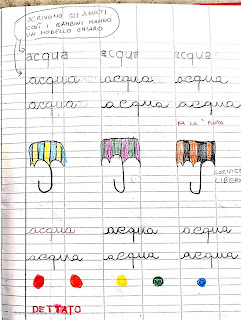 SCRIVONO GLI ADULTI
COSÌ I BAMBINI HANNO
UN MODELLO CHIARO
acqua acqua acqua
acqua acqua acqua
acqua acqua acqua
FA LA
LIBERA
acqua acqua acqua
acqua acqua acqua
DETTATO